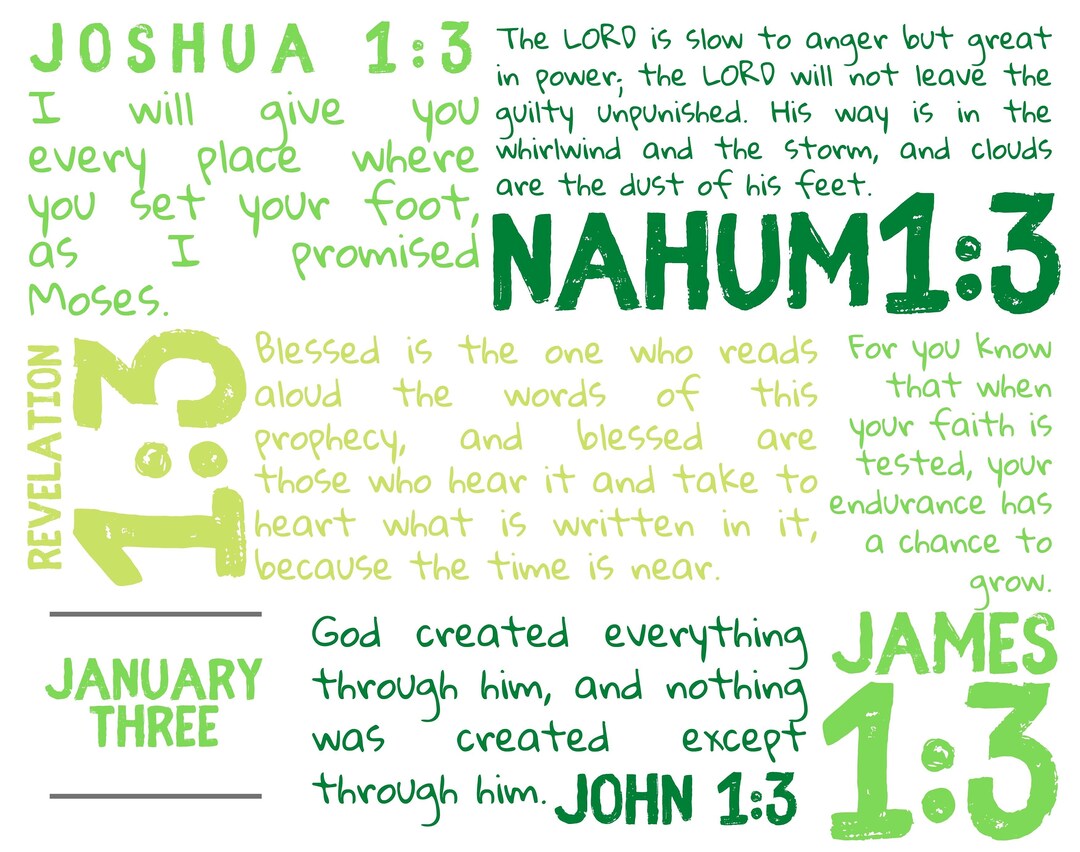 JOSHUA 1:3
I will give you
every place where
you set your foot,
as I promised
Moses.
The LORD is slow to anger but great
in power; the LORD will not leave the
guilty unpunished. His way is in the
whirlwind and the storm, and clouds
are the dust of his feet.
NAHUM 1:3
REVELATION
1:3
Blessed is the one who reads
aloud the words of this
prophecy, and blessed are
those who hear it and take to
heart what is written in it,
because the time is near.
For you know
that when
your faith is
tested, your
endurance has
a chance to
grow.
JAMES
1:3
JANUARY
THREE
God created everything
through him, and nothing
was created except
through him.
JOHN 1:3